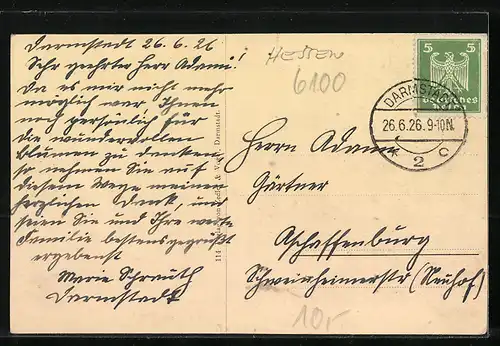 Darmstadt 26.6.26
Sehr geehrter Herr Adami!
Da es mir nicht mehr
möglich war Ihnen
noch persönlich für
die wundervollen
Blumen zu danken
so nehmen Sie auf
diesem Wege meinen
herzlichen Dank, und
seien Sie und Ihre werte
Familie bestens gegrüßt
ergebenst
Marie Schrauth
Darmstadt
HESSEN
6100
5 5
Deutsches
Reich
DARMSTADT
26.6.26.9-10N.
* 2 c
Herrn Adami
Gärtner
Aschaffenburg
Schweinheimerstr (Neuhof)
10,-
114
Darmstadt.